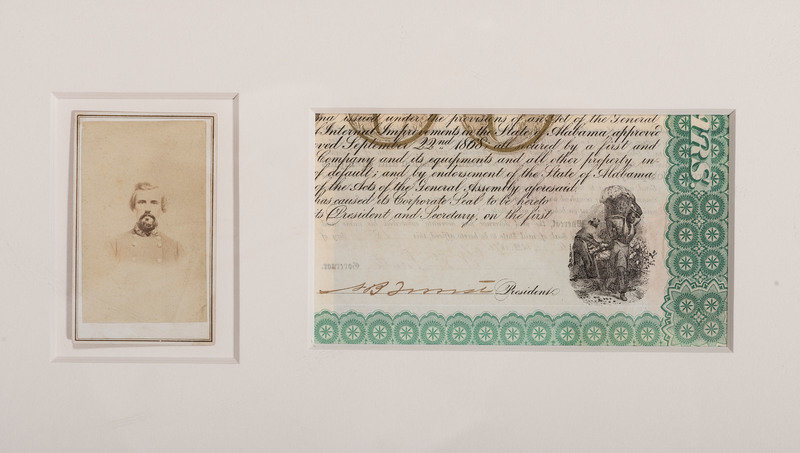 ma issued under the provisions of an Act of the General
Internal Improvements in the State of Alabama, approved
ved September 22nd 1868 all secured by a first and
Company and its equipments and all other property, in
of default; and by endorsement of the State of Alabama
of the Acts of the General Assembly aforesaid
has caused its Corporate Seal to be hereto
its President and Secretary, on the first
Governor.
President.
ERS.